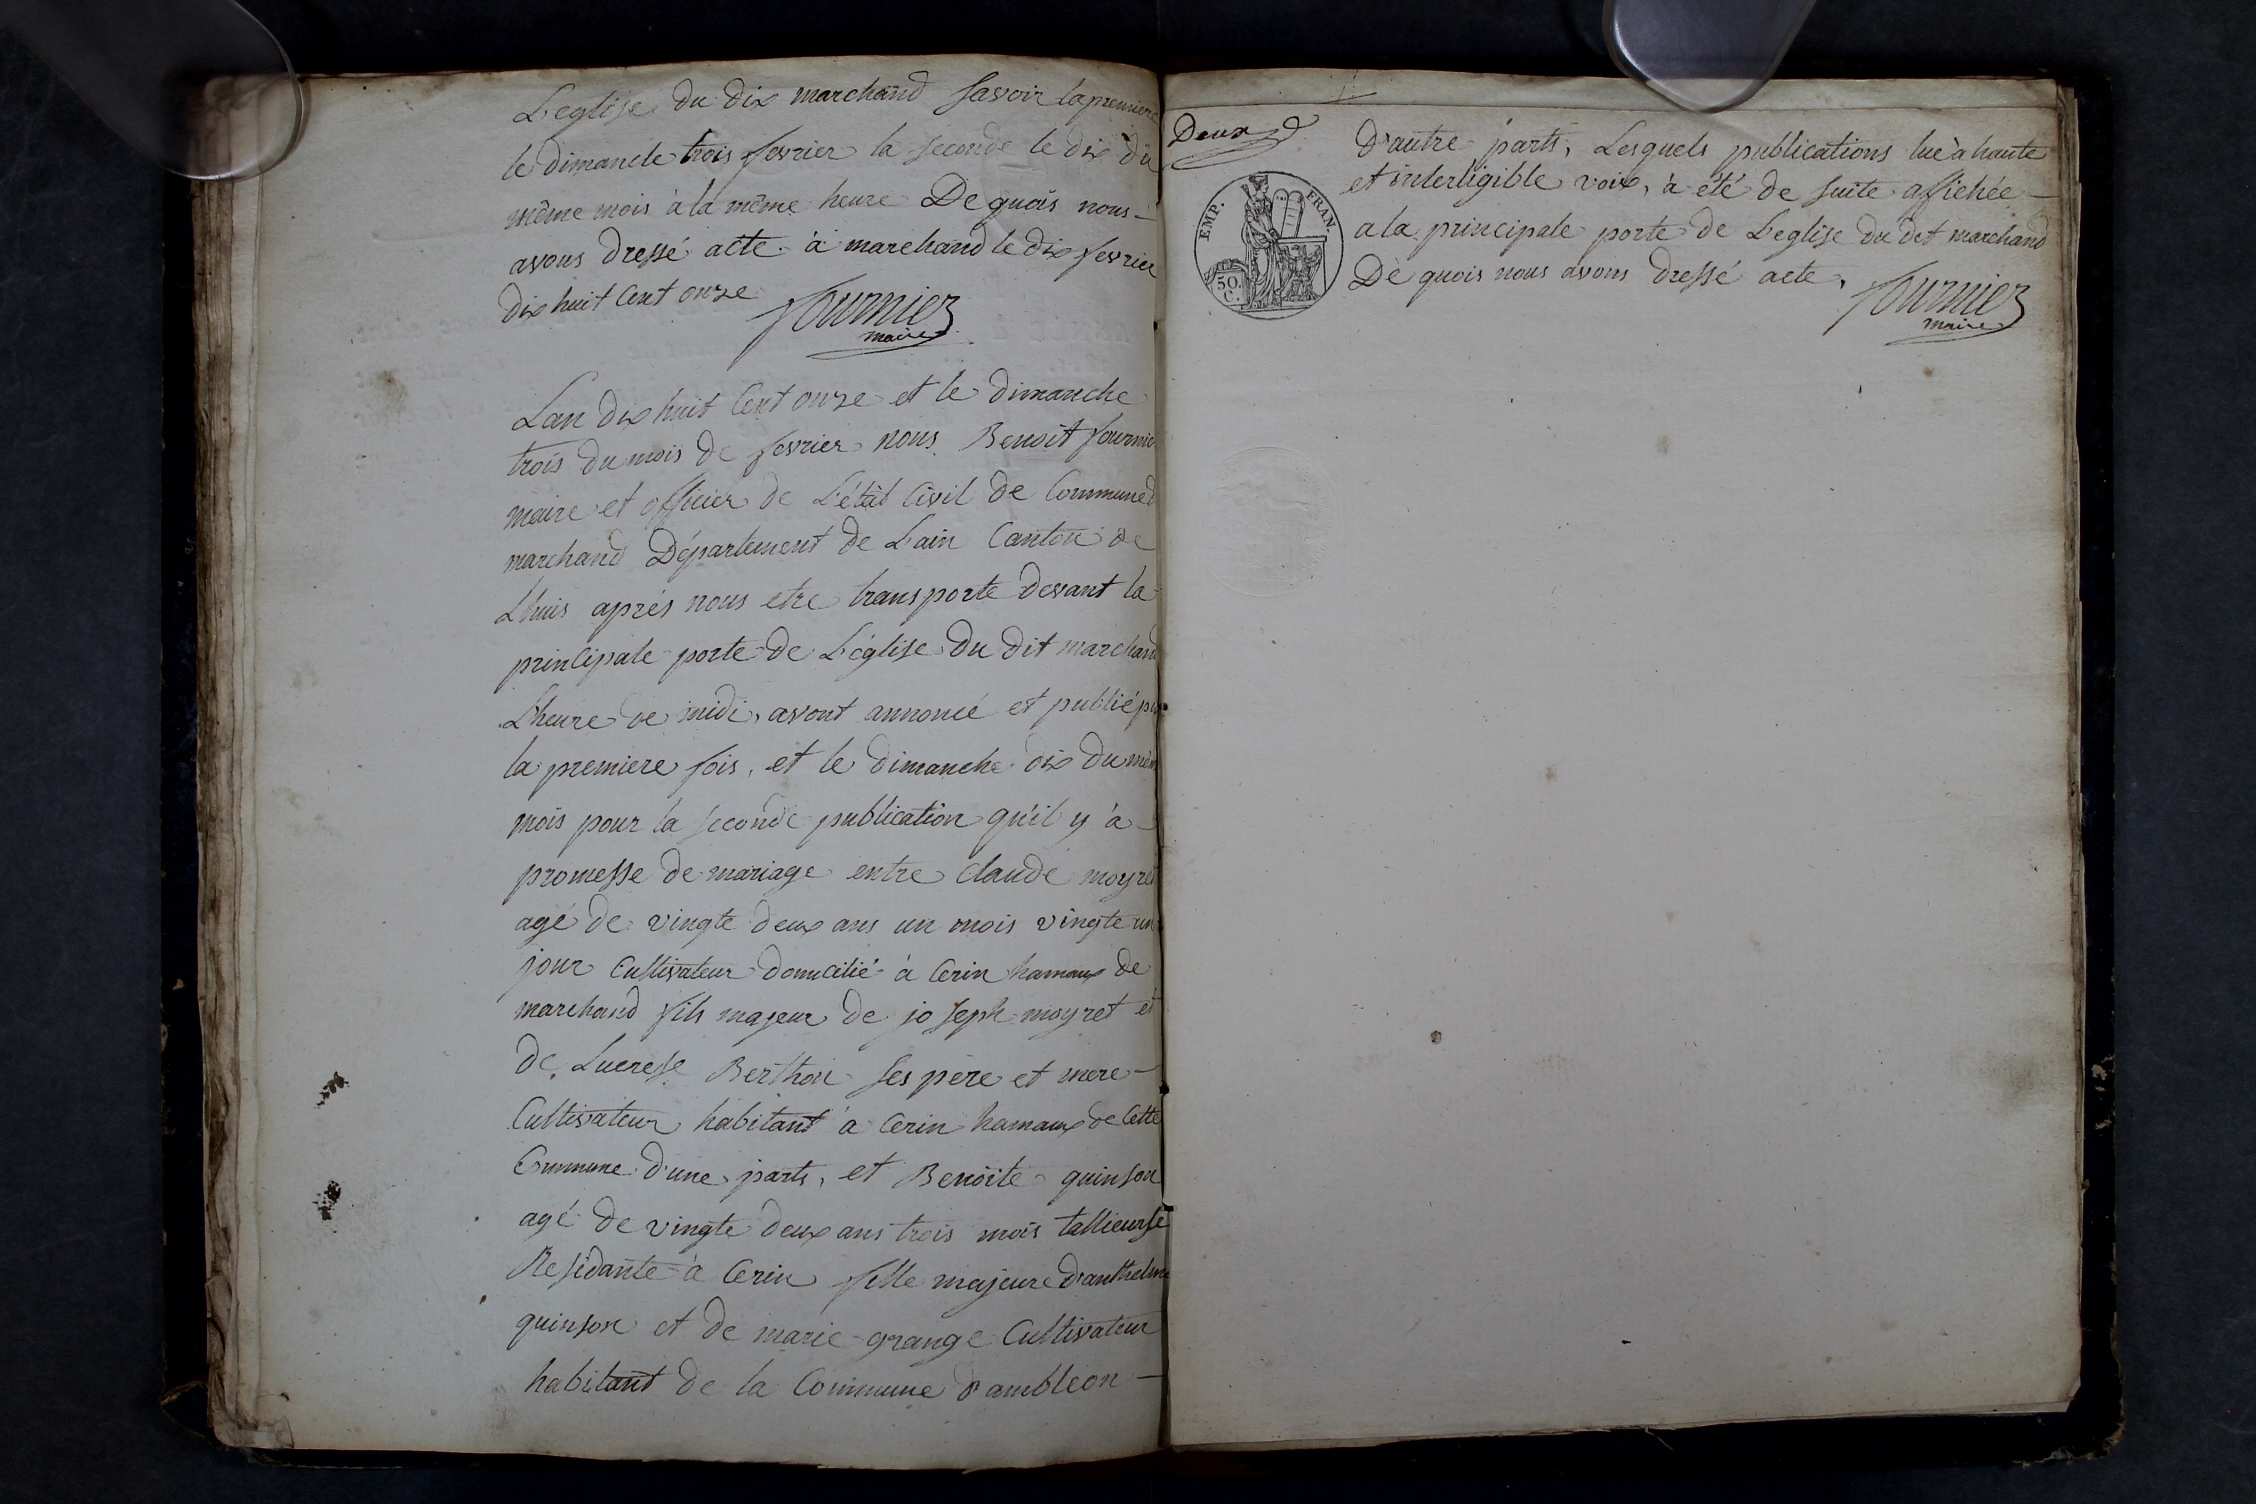 L'eglise du dix marchand savoir la premiere
le dimancle trois fevrier la seconde le dix du
même mois à la même heure De quois nous -
avons dressé acte à marchand le dix fevrier
dix huit cent onze
fournier
maire
Lan dix huit Cent onze et le dimanche
trois du mois de fevrier nous Benoit fournier
maire et officier de L'étât Civil de Commune d
marchand Département de Lain Canton de
Lhuis aprés nous etre transporte devant la
principale porte de L'église du dit marchand
L'heure de midi, avont annoncé et publié p
la premiere fois, et le dimanche dix du mêm
mois pour la seconde publication qu'il y à
promesse de mariage entre Claude moyret
agé de vingte deux ans un mois vingte un
jour Cultivateur domicilié à Cerin hamaux de
marchand fils majeur de joseph moyret et
de Lucresse Berthon ses père et mere -
Cultivateur habitant à Cerin hamaux de Cette
Commune d'une parts, et Benoite quinson
agé de vingte deux ans trois mois tallieurse
Residante à Cerin fille majeure d'anthelme
quinson et de marie grange Cultivateur
habitant de la Commune d'ambléon -
Deux
EMP. FRAN.
50.
C.
D'autre parts, Lesquels publications lue à haute
et interligible voix, à été de suite affichée -
a la principale porte de L'eglise du dit marchand
De quois nous avons dressé acte,
fournier
maire